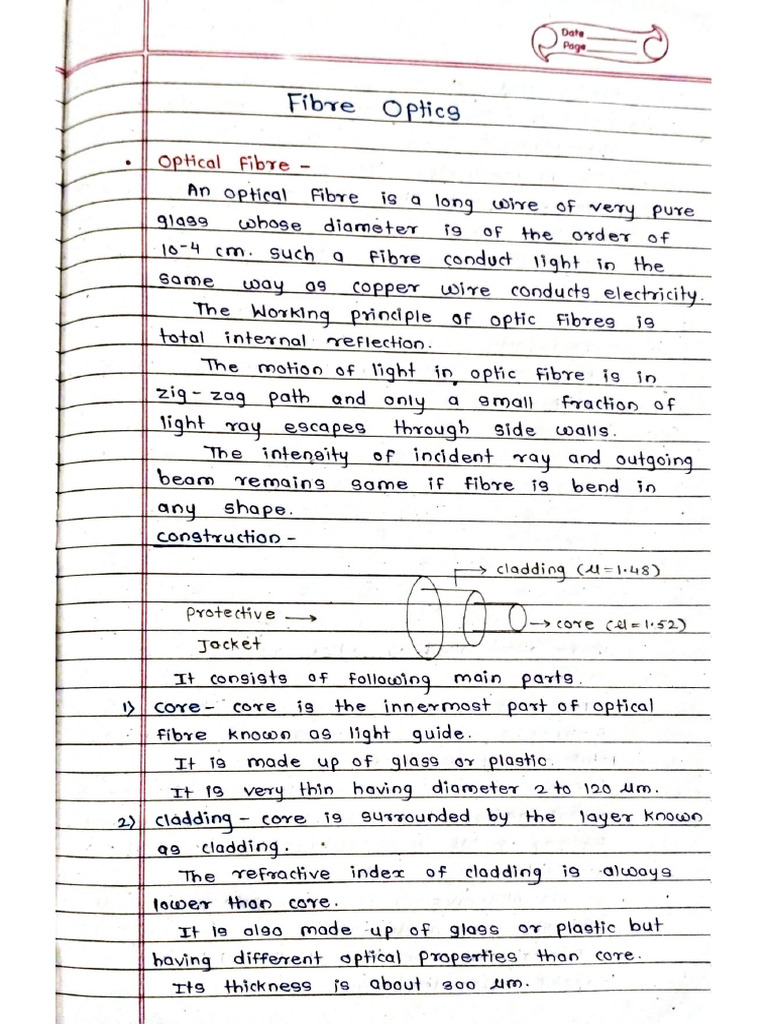 Date
Page
Fibre Optics
• Optical Fibre -
An optical fibre is a long wire of very pure
glass whose diameter is of the order of
10-4 cm. such a fibre conduct light in the
same way as copper wire conducts electricity.
The Working principle of optic fibres is
total internal reflection.
The motion of light in optic fibre is in
zig-zag path and only a small fraction of
light ray escapes through side walls.
The intensity of incident ray and outgoing
beam remains same if fibre is bend in
any shape.
construction -
→ cladding (μ=1.48)
Protective →
Jacket
→ core (μ=1.52)
It consists of following main parts.
1) core - core is the innermost part of optical
fibre known as light guide.
It is made up of glass or plastic.
It is very thin having diameter 2 to 120 μm.
2) cladding - core is surrounded by the layer known
as cladding.
The refractive index of cladding is always
lower than core.
It is also made up of glass or plastic but
having different optical properties than core.
Its thickness is about 300 μm.